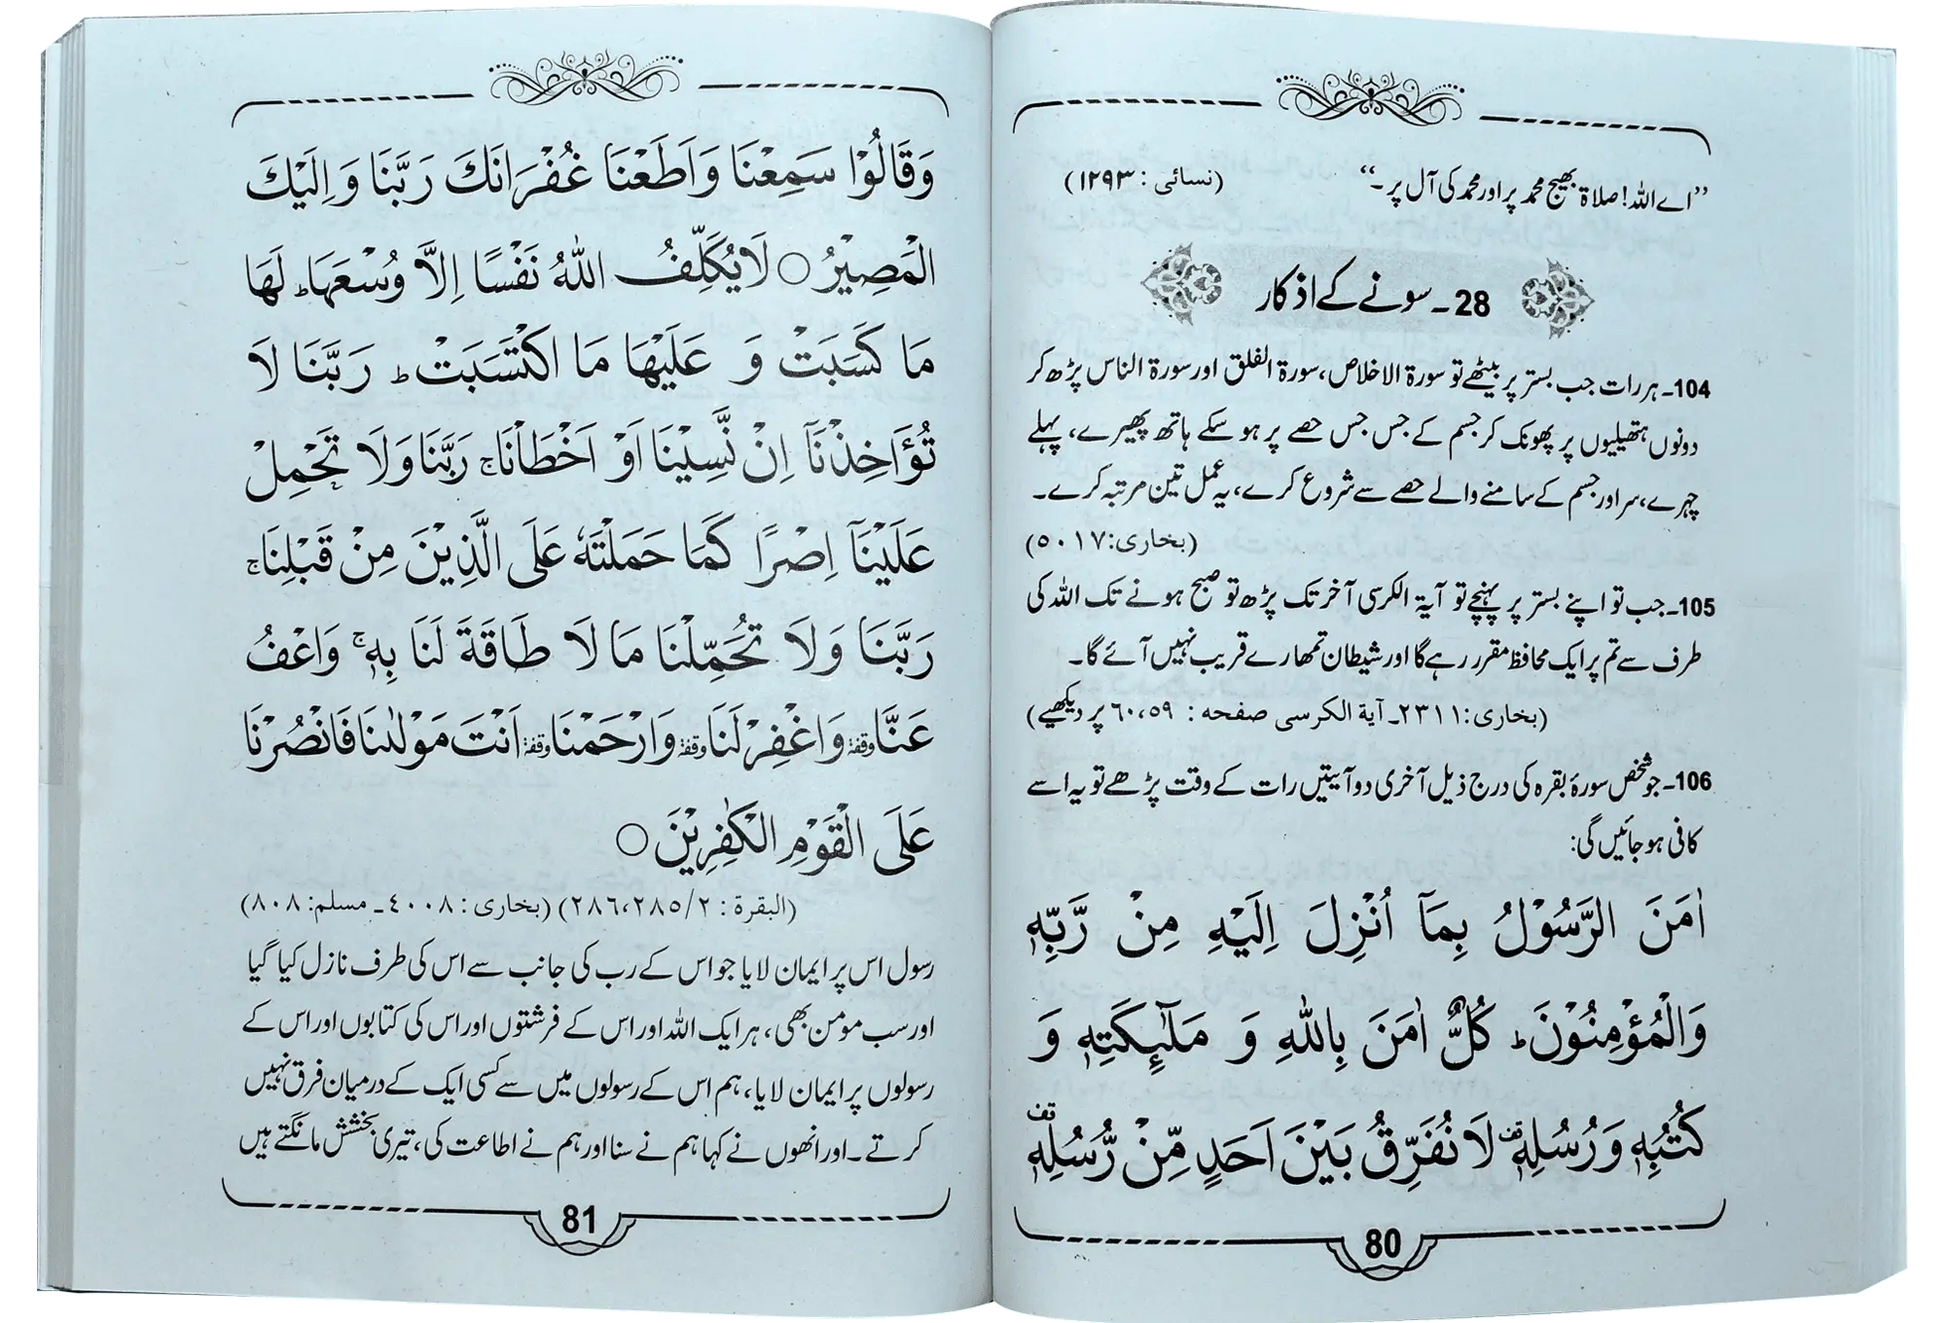 ’’اے اللہ! صلاۃ بھیج محمد پر اور محمد کی آل پر۔‘‘ (نسائی : ۱۲۹۳)
28۔ سونے کے اذکار
104۔ ہر رات جب بستر پر بیٹھے تو سورۃ الاخلاص، سورۃ الفلق اور سورۃ الناس پڑھ کر
دونوں ہتھیلیوں پر پھونک کر جسم کے جس جس حصے پر ہو سکے ہاتھ پھیرے، پہلے
چہرے، سر اور جسم کے سامنے والے حصے سے شروع کرے، یہ عمل تین مرتبہ کرے۔
(بخاری: ۵۰۱۷)
105۔ جب تو اپنے بستر پر پہنچے تو آیۃ الکرسی آخر تک پڑھ تو صبح ہونے تک اللہ کی
طرف سے تم پر ایک محافظ مقرر رہے گا اور شیطان تمھارے قریب نہیں آئے گا۔
(بخاری: ۲۳۱۱۔ آیة الکرسی صفحہ : ۶۰،۵۹ پر دیکھیے)
106۔ جو شخص سورۂ بقرہ کی درج ذیل آخری دو آیتیں رات کے وقت پڑھے تو یہ اسے
کافی ہو جائیں گی:
اٰمَنَ الرَّسُوْلُ بِمَآ اُنْزِلَ اِلَيْهِ مِنْ رَّبِّهٖ
وَالْمُؤْمِنُوْنَ ؕ كُلٌّ اٰمَنَ بِاللّٰهِ وَ مَلٰٓىِٕكَتِهٖ وَ
كُتُبِهٖ وَرُسُلِهٖ ۫ لَا نُفَرِّقُ بَيْنَ اَحَدٍ مِّنْ رُّسُلِهٖ ۫
80
وَقَالُوْا سَمِعْنَا وَاَطَعْنَا غُفْرَانَكَ رَبَّنَا وَاِلَيْكَ
الْمَصِيْرُ ○ لَا يُكَلِّفُ اللّٰهُ نَفْسًا اِلَّا وُسْعَهَا ؕ لَهَا
مَا كَسَبَتْ وَ عَلَيْهَا مَا اكْتَسَبَتْ ؕ رَبَّنَا لَا
تُؤَاخِذْنَآ اِنْ نَّسِيْنَا اَوْ اَخْطَاْنَا ۚ رَبَّنَا وَلَا تَحْمِلْ
عَلَيْنَآ اِصْرًا كَمَا حَمَلْتَهٗ عَلَى الَّذِيْنَ مِنْ قَبْلِنَا ۚ
رَبَّنَا وَلَا تُحَمِّلْنَا مَا لَا طَاقَةَ لَنَا بِهٖ ۚ وَاعْفُ
عَنَّا وقفة وَاغْفِرْ لَنَا وقفة وَارْحَمْنَا وقفة اَنْتَ مَوْلٰىنَا فَانْصُرْنَا
عَلَى الْقَوْمِ الْكٰفِرِيْنَ ○
(البقرة : ۲/۲۸۵،۲۸۶) (بخاری : ۴۰۰۸۔ مسلم: ۸۰۸)
رسول اس پر ایمان لایا جو اس کے رب کی جانب سے اس کی طرف نازل کیا گیا
اور سب مومن بھی، ہر ایک اللہ اور اس کے فرشتوں اور اس کی کتابوں اور اس کے
رسولوں پر ایمان لایا، ہم اس کے رسولوں میں سے کسی ایک کے درمیان فرق نہیں
کرتے۔ اور انھوں نے کہا ہم نے سنا اور ہم نے اطاعت کی، تیری بخشش مانگتے ہیں
81